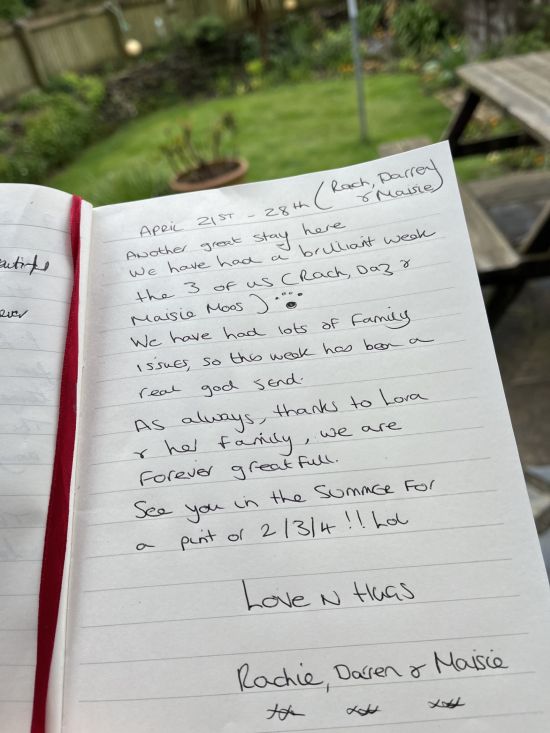 April 21st - 28th (Rach, Darren
& Maisie)
Another great stay here
We have had a brilliant week
the 3 of us (Rach, Daz &
Maisie Moos)
We have had lots of family
issues, so this week has been a
real god send.
As always, thanks to Lora
& her family, we are
forever greatfull.
See you in the Summer for
a pint or 2/3/4!! Lol
Love N Hugs
Rachie, Darren & Maisie
xx xxx xxx